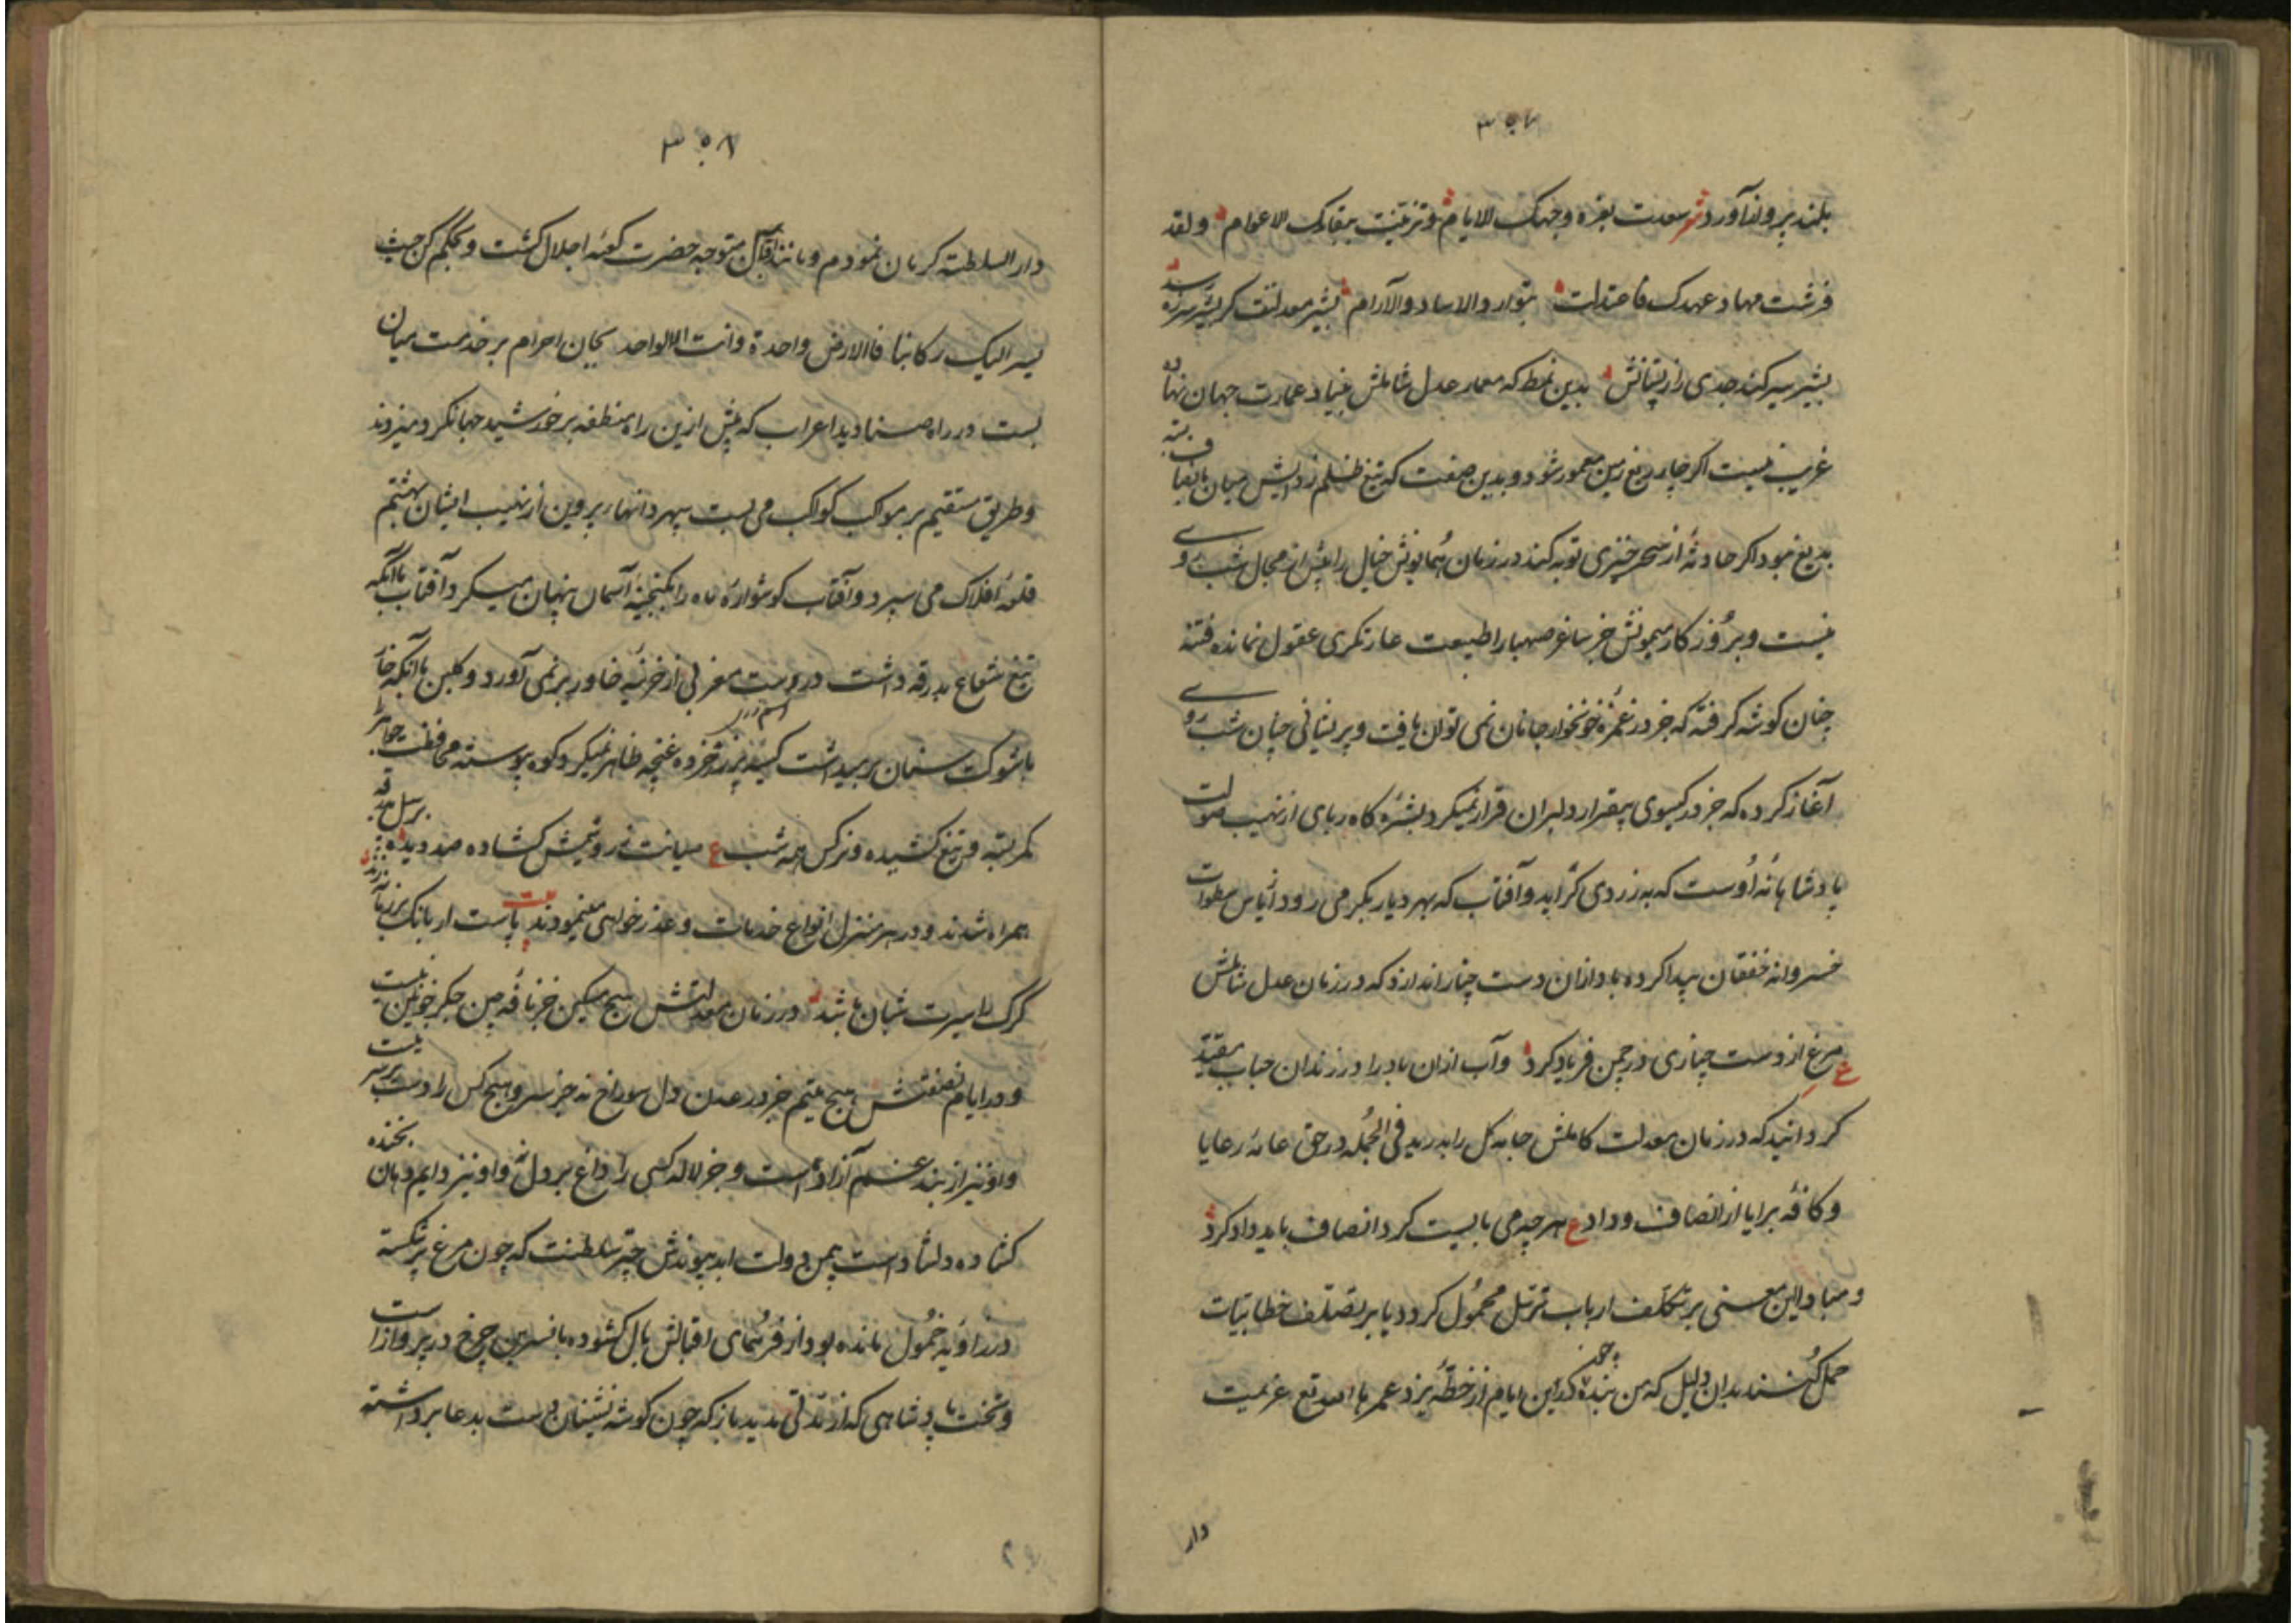 ۳۵۷
بلند پرواز آورد شعر سعدت بغره وجهک الایام وتزینت ببقائک الاعوام ولقد
فرشت مهاد عهدک فاعتدلت بتوارد الاساد والآرام بشیر معدلتت کر بشیر
بشیر سیر کند جدی را ز پستانش بدین نمط که معمار عدل شاملش بنیاد عمارت جهان نهاده
غریب نیست اگر چار ربع زمین معمور شود و بدین صفت که تیغ ظلم زدایش میان بسته
بدیع نبود اگر حادثه از سحرخیزی توبه کند در زمان همایونش خیال را بیش از مجال شب روی
نیست و بروزکار میمونش جز ساغر صهبا را طبیعت غارتگری عقول نمانده فتنه
چنان کوشه گرفته که جز در غمزهٔ خونخوار جانان نمی توان یافت و پریشانی چنان شب روی
آغاز کرده که جز در گیسوی بیقرار دلبران قرار نمیگیرد بشرهٔ کاه ربای از نهیب صولت
پادشاهانهٔ اوست که به زردی گراید و آفتاب که بهر دیار بگر می رود از باس سطوات
خسروانه خفقان پیدا کرده باد ازان دست چنار اندازد که در زمان عدل شاملش
ع مرغ از دست چناری در چمن فریاد کرد وآب ازان باد را در زندان حباب مقید
گردانید که در زمان معدلت کاملش جامهٔ گل را بدرید فی الجمله در حق عامهٔ رعایا
و کافهٔ برایا از انصاف و داد ع هرچه می بایست کرد انصاف باید داد کرد
و مبادا این معنی بر تکلف ارباب ترسل محمول گردد یا بر تصلف خطابیات
حمل کنند بدان دلیل که من بنده چون درین ایام از خطهٔ یزد عمرها الله تع عزیمت
دار
۳۵۸
دار السلطنه کرمان نمودم و مانند اقبال متوجه حضرت کعبهٔ اجلال گشت و بحکم کن حیث
یسیر الیک رکابنا فالارض واحدة وانت الاوحد بجان احرام بر خدمت میان
بست در راه صنادید اعراب که پیش ازین راه منطقه بر خورشید جهانگرد میزدند
وطریق مستقیم بر مواکب کواکب می بست سپهر دانهاء پروین از نهیب ایشان بهشتم
قلعهٔ افلاک می سپرد و آفتاب گوشوارهٔ ماه را بگنجینهٔ آسمان پنهان میکرد آفتاب باآنکه
تیغ شعاع بدرقه داشت درست مغربی از خزینهٔ خاور بر نمی آورد و گلبن باآنکه خار
باشوکت سنان بر میداشت کیسهٔ پرزر خرده غنچه ظاهر نمیکرد و کوه پیوسته محافظت جواهر را
کمر بسته و تیغ کشیده و نرگس همه شب ع میانت زر و تیغش گشاده صد دیده برسل بدرقه
همراه شدند و در هر منزل انواع خدمات و عذرخواهی مینمودند بیت پاست ار بانگ برزمانه زند
گرگ را سیرت شبان باشد در زمان معدلتش هیچ مسکین جز نافهٔ چین جگر خونین نیست
و در ایام نصفتش هیچ یتیم جز در عدن دل سوراخ نه جز سرو هیچ کس را دست بر سر نیست
و او نیز از بند غم آزاد است و جز لاله کسی را داغ بر دل نه و او نیز دایم دهان بخنده
گشاده و دلشاد است بیمن دولت ابد پیوندش چتر سلطنت که چون مرغ پر شکسته
در زاویهٔ خمول مانده بود از فر همای اقبالش بال گشوده با نسرین چرخ در پرواز است
و تخت پادشاهی که از مدتی مدید باز که چون گوشه نشینان دست بدعا برداشته